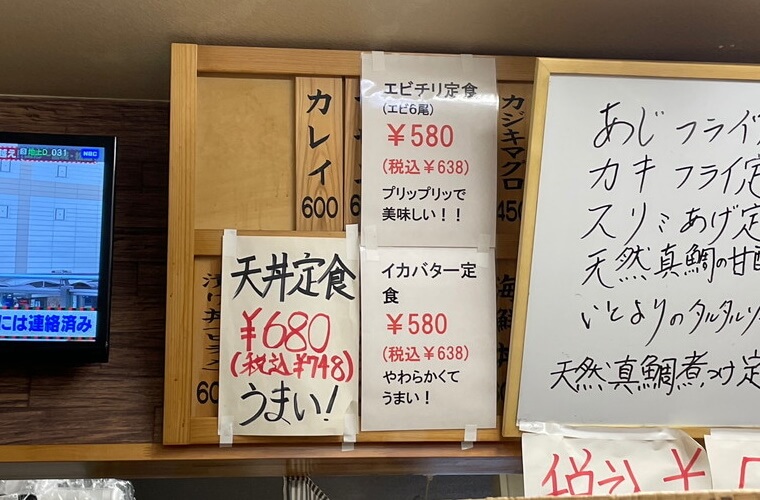 地上D 031
NBC
には連絡済み
カレイ
600
エビチリ定食
(エビ6尾)
￥580
(税込￥638)
プリップリッで
美味しい！！
カジキマグロ
450
天丼定食
¥680
(税込¥748)
うまい!
イカバター定
食
￥580
(税込￥638)
やわらかくて
うまい！
海鮮丼
あじフライ
カキフライ定
スリミあげ定
天然真鯛の甘酢
いとよりのタルタルソ
天然真鯛煮つけ定
税込¥